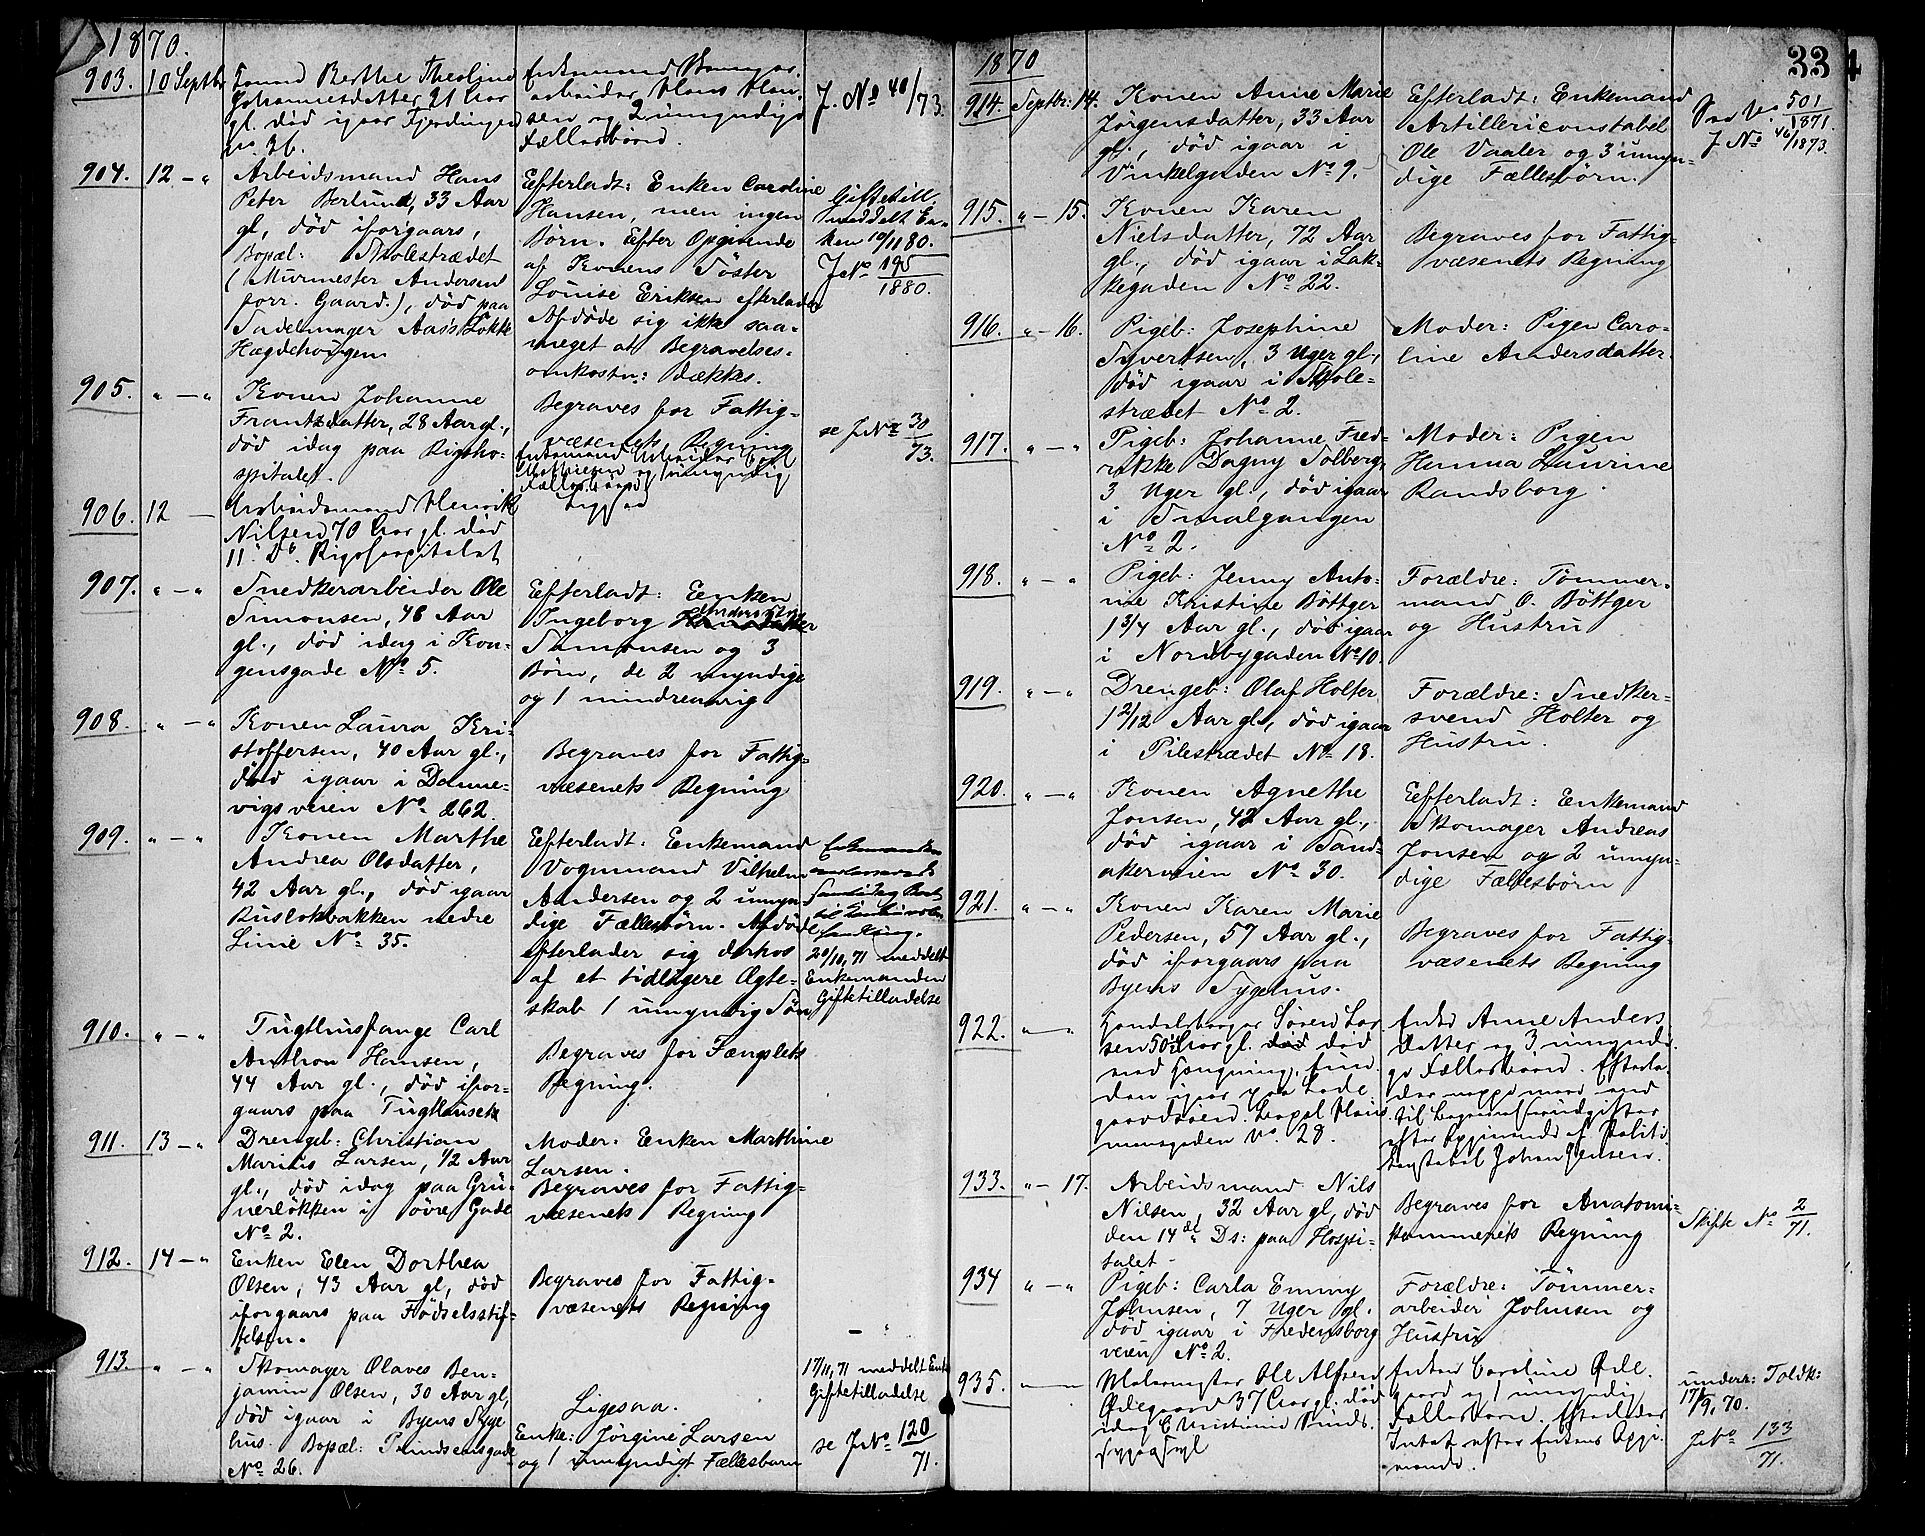 1870.
903. 10 Septbr
Berthe Theoline
Johannesdatter 21 Aar
gl. død igaar Fjerdingen
No. 36.
Enkemand
arbeider Hans Han-
sen og 2 umyndige
Fællesbörn.
J. No 40/73.
904. 12 - "
Arbeidsmand Hans
Peter Berlund, 33 Aar
gl., død iforgaars,
Bopæl: Skolestrædet
(Murmester Andersens
forr. Gaard.), död paa
Sadelmager Aas's Løkke
Hægdehougen
Efterladt: Enken Caroline
Hansen, men ingen
Börn. Efter Opgivende
af Konens Söster
Louise Eriksen efterlader
Afdøde sig ikke saa-
meget at Begravelses-
omkostn: dækkes.
Giftetill.
meddelt En-
ken 10/11 80.
J No 195/1880.
905. " - "
Konen Johanne
Frantzdatter, 28 Aar gl.,
död idag paa Rigsho-
spitalet.
Begraves for Fattig-
væsenets Regning
Enkemand Arbeider
Mathiesen og 1 umyndig
Fællesbarn
se J No 30/73.
906. 12 -
Arbeidsmand Henrik
Nilsen 70 Aar gl. død
11 Ds. Rigshospitalet
907. " - "
Snedkerarbeider Ole
Simonsen, 46 Aar
gl., död idag i Kon-
gensgade No 5.
Efterladt: Enken
Ingeborg
Simonsen og 3
Börn, de 2 myndige
og 1 mindreaarig
908. " - "
Konen Laura Kri-
stoffersen, 40 Aar gl.,
död igaar i Danne-
vigsveien No 262.
Begraves for Fattig-
væsenets Regning
909. " - "
Konen Marthe
Andrea Olsdatter,
42 Aar gl., död igaar
Ruslökbakken nedre
Linie No 35.
Efterladt: Enkemand
Vognmand Vilhelm
Andersen og 2 umyn-
dige Fællesbörn. Afdøde
efterlader sig derhos
af et tidligere Ægte-
skab 1 umyndig Sön
20/10, 71 meddelt
Enkemanden
Giftetilladelse
910. " - "
Tugthusfange Carl
Anthon Hansen,
44 Aar gl., död ifor-
gaars paa Tugthuset
Begraves for Fængslets
Regning.
911. 13 - "
Drengeb: Christian
Marius Larsen, 1/2 Aar
gl., död idag paa Grü-
nerlökken i övre Gade
No 2.
Moder: Enken Marthine
Larsen.
Begraves for Fattig-
væsenets Regning
912. 14 - "
Enken Elen Dorthea
Olsen, 43 Aar gl, död
iforgaars paa Födselsstif-
telsen.
Begraves for Fattig-
væsenets Regning
913. " - "
Skomager Olaves Ben-
jamin Olsen, 30 Aar gl,
død igaar i Byens Syge
hus. Bopæl: Trondsensgade
No 26.
Ligesaa.
Enke: Jörgine Larsen
og 1 umyndigt Fællesbarn
17/11, 71 meddelt Enk
Giftetilladelse
se J No 120/71.
1870
334
914. Septbr: 14.
Konen Anne Marie
Jørgensdatter, 33 Aar
gl., död igaar i
Vinkelgaden No 9.
Efterladt: Enkemand
Artillericonstabel
Ole Vaaler og 3 umyn-
dige Fællesbörn.
501/1871.
J No 46/1873.
915. " - 15.
Konen Karen
Nielsdatter, 72 Aar
gl., död igaar i Lak-
kegaden No 22.
Begraves for Fattig-
væsenets Regning
916. " - 16.
Pigeb: Josephine
Syvertsen, 3 Uger gl.,
död igaar i Skole-
strædet No 2.
Moder: Pigen Caro-
line Andersdatter.
917. " - "
Pigeb: Johanne Fred-
rikke Dagny Solberg,
3 Uger gl., död igaar
i Smalgangen
No 2.
Moder: Pigen
Hanna Laurine
Randsborg.
918. " - "
Pigeb: Jenny Anto-
nie Kristine Böttger
1 3/4 Aar gl., död igaar
i Nordbygaden No 10.
Forældre: Tömmer-
mand O. Böttger
og Hustru
919. " - "
Drengeb: Olaf Holter
1 2/12 Aar gl., död igaar
i Pilestrædet No 18.
Forældre: Snedker-
svend Holter og
Hustru.
920. " - "
Konen Agnethe
Jonsen, 42 Aar gl.,
död igaar i Sand-
akerveien No 30.
Efterladt: Enkemand
Skomager Andreas
Jonsen og 2 umyn-
dige Fællesbörn
921. " - "
Konen Karen Marie
Pedersen, 57 Aar gl.,
död iforgaars paa
Byens Sygehus.
Begraves for Fattig-
væsenets Regning
922. " - "
Handelsborger Søren Lar
sen 50 Aar gl. død
ved Hængning, fun-
den igaar paa Lade
gaardsøen. Bopæl Haus
mansgaden No. 28.
Enke Anne Anders
datter og 3 umyndi
ge Fællesbörn. Efterla
der neppe mere end
til Begravelsesudgifter
efter Opgivende af Politi
konstabel Johan Jensen.
933. " - 17.
Arbeidsmand Nils
Nilsen, 32 Aar gl, död
den 14de Ds: paa Hospi-
talet.
Begraves for Anatomi-
kammerets Regning
Skifte No 2/71.
934 " - "
Pigeb: Carla Emmy
Johnsen, 7 Uger gl.
död igaar i Fredensborg
veien No 2.
Forældre: Tömmer-
arbeider Johnsen og
Hustru
935.
Malermester Ole Alfred
Ødegaard 37 Aar gl. død
idag Christiania
Enken Caroline Øde
gaard og 1 umyndig
Fællesbarn. Efterlader
Intet efter Enkens Opgi-
vende.
underr: Toldk:
17/9, 70.
J No 133/71.